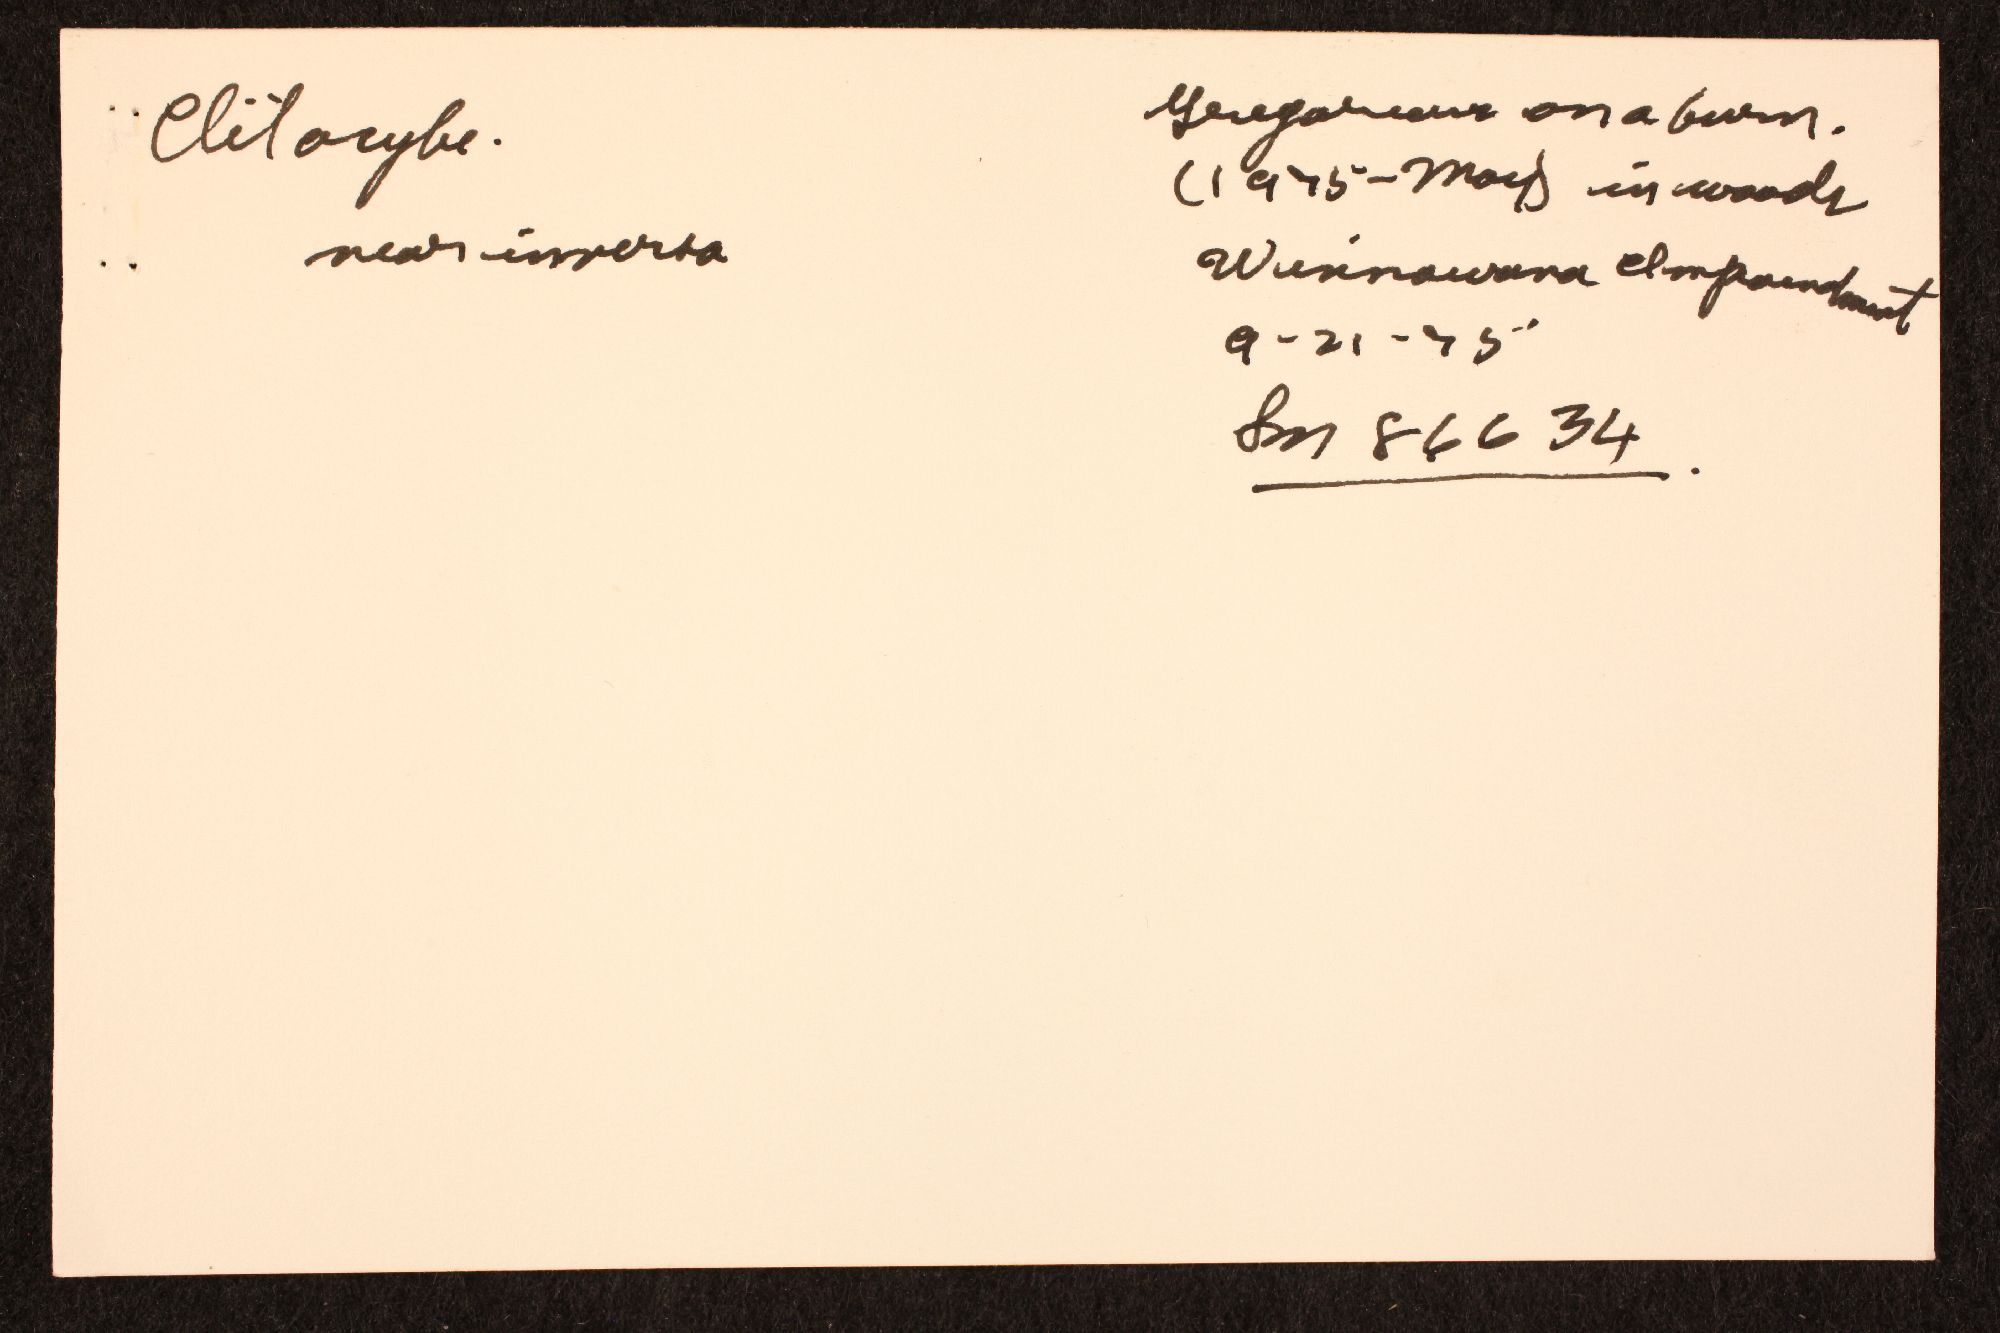 Clitocybe.
near inversa
Gregarious on a burn.
(1975-May) in woods
Winnawana Impoundment
9-21-75
Sm 86634.